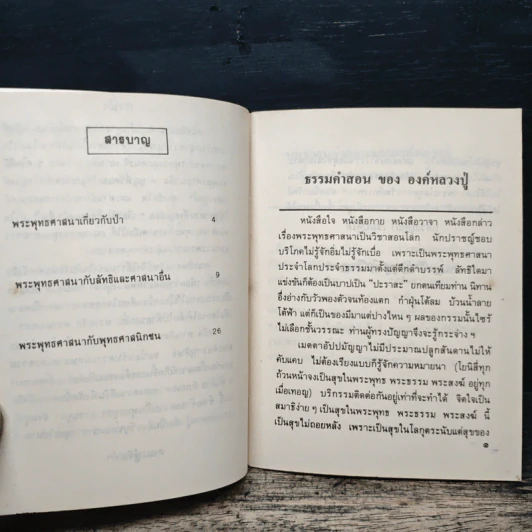 สารบาญ
พระพุทธศาสนาเกี่ยวกับป่า 4
พระพุทธศาสนากับลัทธิและศาสนาอื่น 9
พระพุทธศาสนากับพุทธศาสนิกชน 26
ธรรมคำสอน ของ องค์หลวงปู่
หนังสือใจ หนังสือกาย หนังสือวาจา หนังสือกล่าว
เรื่องพระพุทธศาสนาเป็นวิชาสอนโลก นักปราชญ์ชอบ
บริโภคไม่รู้จักอิ่มไม่รู้จักเบื่อ เพราะเป็นพระพุทธศาสนา
ประจำโลกประจำธรรมมาตั้งแต่ดึกดำบรรพ์ ลัทธิใดมา
แข่งขันก็ต้องเป็นบาปเป็น “ปะราสะ” ยกตนเทียมท่าน นิทาน
อึ่งอ่างกับวัวพองตัวจนท้องแตก กำฝุ่นโต้ลม บ้วนน้ำลาย
โต้ฟ้า แต่ก็เป็นของมีมาแต่ปางไหน ๆ ผลของกรรมนั้นไซร้
ไม่เลือกชั้นวรรณะ ท่านผู้ทรงปัญญาจึงจะรู้กระจ่าง ๆ
เมตตาอัปปมัญญาไม่มีประมาณปลูกสันดานไม่ให้
คับแคบ ไม่ต้องเรียงแบบก็รู้จักความหมายนา (โยนิสี่ทุก
ถ้วนหน้าจงเป็นสุขในพระพุทธ พระธรรม พระสงฆ์ อยู่ทุก
เมื่อเทอญ) บริกรรมติดต่อกันอยู่เท่าที่จะทำได้ จิตใจเป็น
สมาธิง่าย ๆ เป็นสุขในพระพุทธ พระธรรม พระสงฆ์ นี้
เป็นสุขไม่ถอยหลัง เพราะเป็นสุขในโลกุตระนับแต่สุขของ
๑